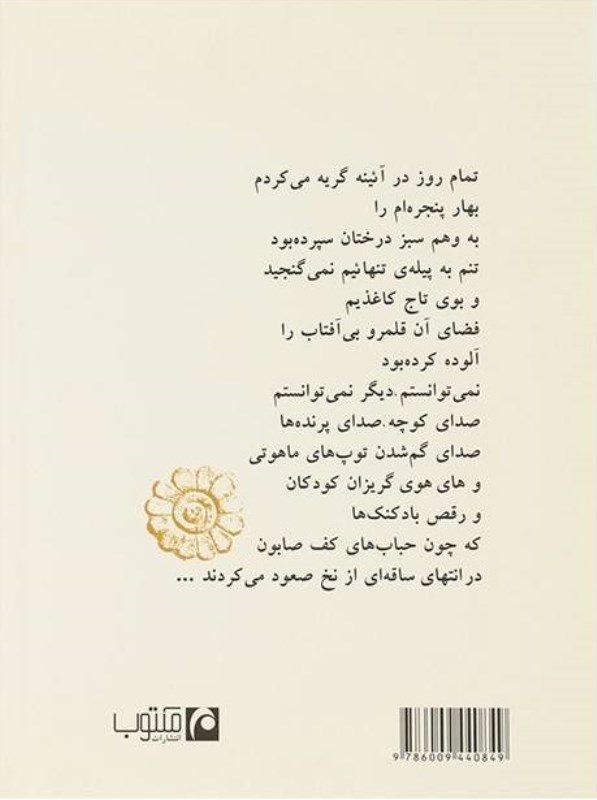 تمام روز در آئینه گریه می‌کردم
بهار پنجره‌ام را
به وهم سبز درختان سپرده‌بود
تنم به پیله‌ی تنهائیم نمی‌گنجید
و بوی تاج کاغذیم
فضای آن قلمرو بی‌آفتاب را
آلوده کرده‌بود
نمی‌توانستم.دیگر نمی‌توانستم
صدای کوچه.صدای پرنده‌ها
صدای گم‌شدن توپ‌های ماهوتی
و های‌هوی گریزان کودکان
و رقص بادکنک‌ها
که چون حباب‌های کف صابون
درانتهای ساقه‌ای از نخ صعود می‌کردند ...
مکتوب
انتشارات
9 786009 440849